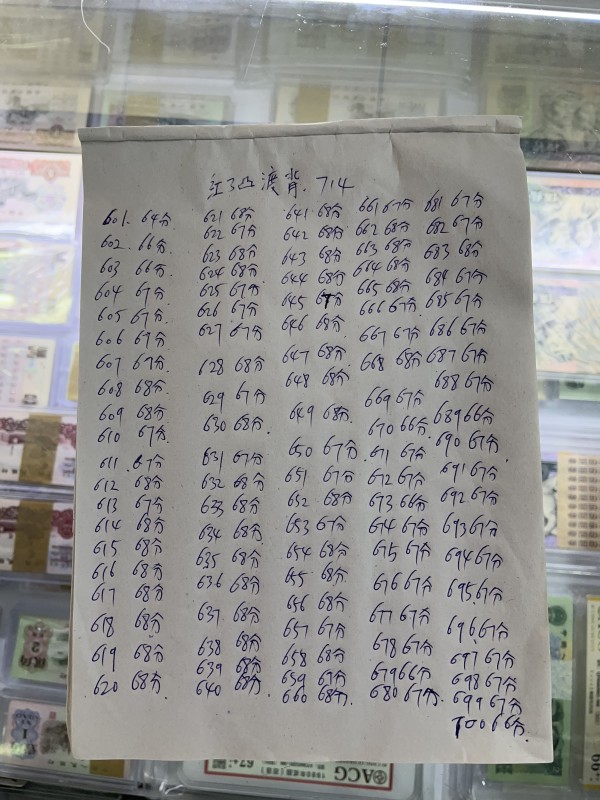 红3凸渡背. 714
601. 64分
602. 66分
603 66分
604 67分
605 67分.
606 67分.
607 67分.
608 68分.
609 68分.
610 67分.
611 67分.
612 68分.
613 67分
614 68分.
615 68分.
616 68分
617 68分.
618 68分.
619 68分
620 68分.
621 68分
622 67分
623 68分
624 68分
625 67分
626 67分
627 67分
628 68分.
629 67分
630 68分.
631 67分
632 68分
633 68分
634 68分
635 68分
636 68分
637 68分
638 68分
639 68分
640 68分
641 68分
642 68分
643 68分
644 68分
645 67分
646 68分
647 68分
648 68分
649 68分
650 67分
651 67分
652 68分
653 67分
654 68分
655 68分
656 68分
657 67分
658 68分
659 67分
660 68分
661 67分
662 68分
663 68分
664 68分
665 68分
666 67分
667 67分
668 68分
669 67分
670 66分
671 67分
672 67分
673 66分
674 67分
675 67分
676 67分
677 67分
678 67分
679 66分
680 67分
681 67分
682 67分
683 68分
684 67分
685 67分
686 67分
687 67分
688 67分
689 66分
690 67分
691 67分
692 67分
693 67分
694 67分
695 67分
696 67分
697 67分
698 67分
699 67分
700 66分.
ACG
67+